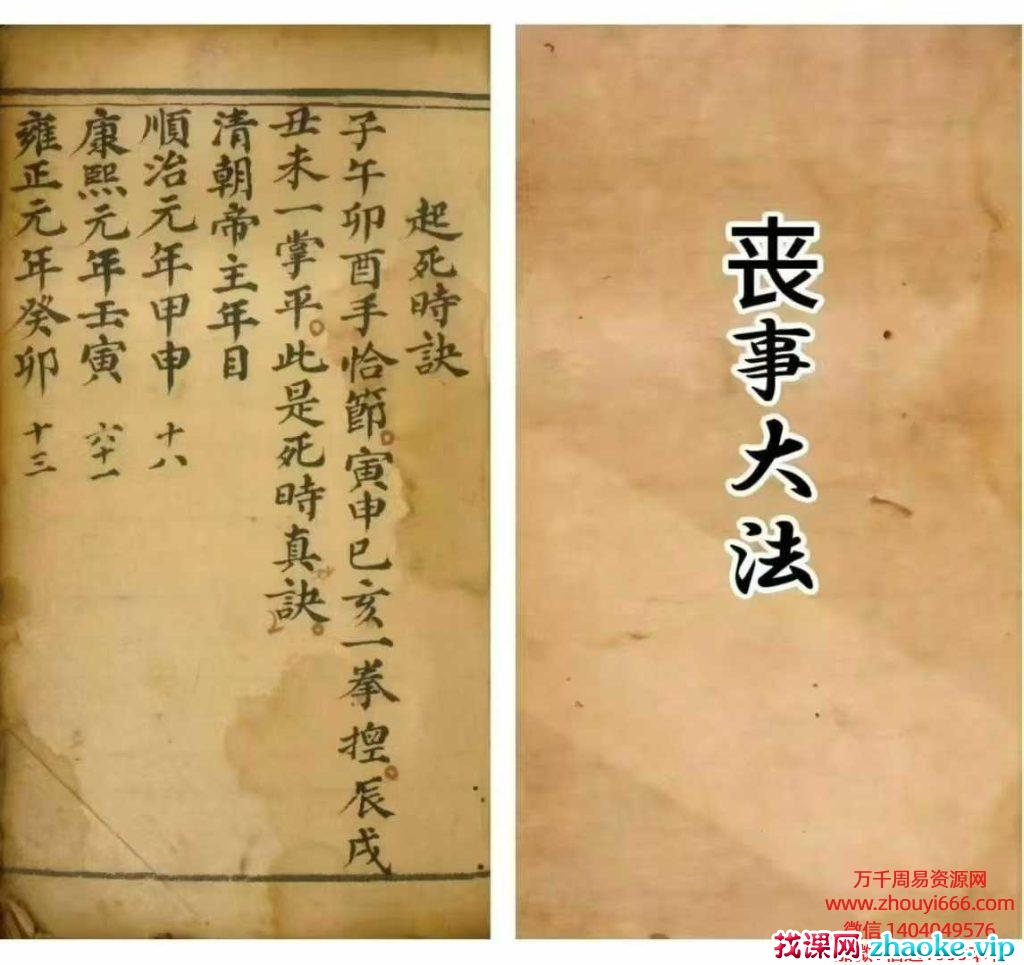 起死時訣
子午卯酉手恰節。寅申巳亥一拳揑。辰戌
丑未一掌平。此是死時真訣。
清朝帝主年目
順治元年甲申 十八
康熙元年壬寅 六十一
雍正元年癸卯 十三
丧事大法
万千周易资源网
www.zhouyi666.com
微信 1404049576
找课网 zhaoke.vip